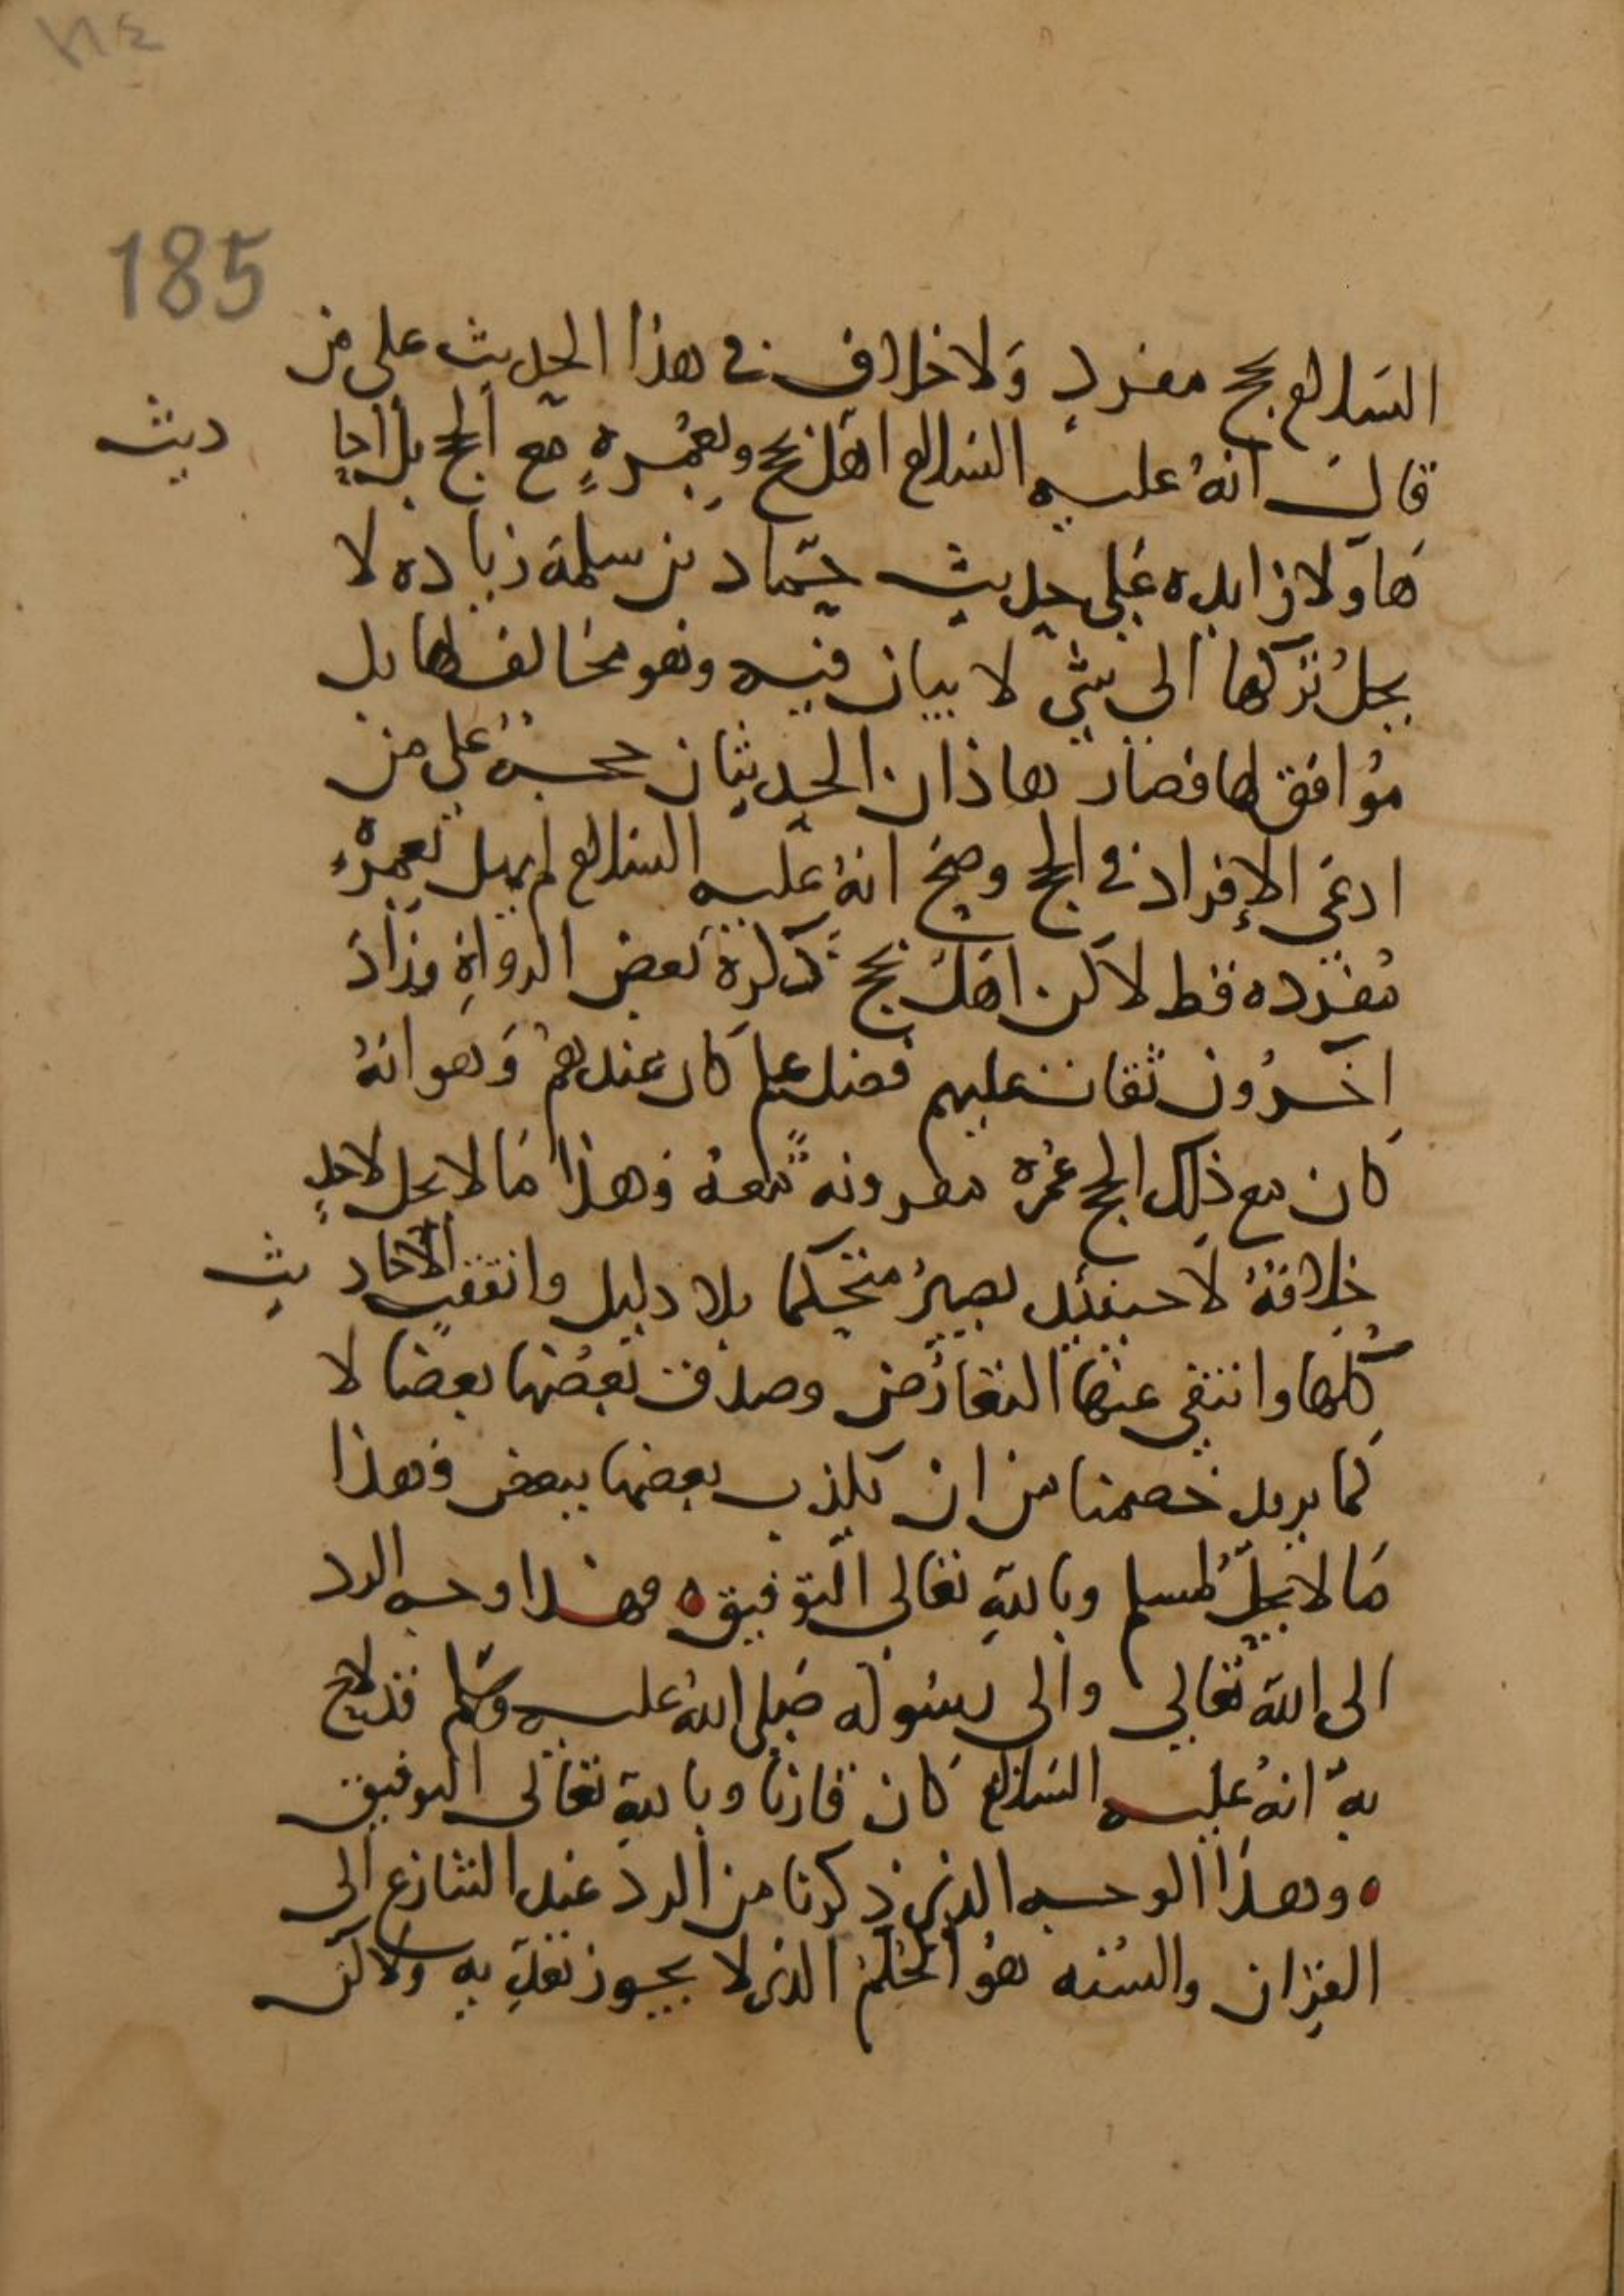 185
السلام بحج مفرد ولا خلاف في هذا الحديث على من
قال انه عليه السلام اهل بحج وبعمرة مع الحج بل احاديث
هاولا زايده على حديث حماد بن سلمة زياده لا
يحل تركها الى شي لا بيان فيه وهو مخالف لها بل
موافق لها فصار هاذان الحديثان حجة على من
ادعى الإفراد في الحج وصح انه عليه السلام لم يهل بعمرة
مفرده قط لاكن اهل بحج ذكره بعض الرواة وزاد
اخرون ثقات عليهم فضل علم كان عندهم وهو انه
كان مع ذلك الحج عمره مقرونه معه وهذا ما لا يحل لاحد
خلافه لا حينئذ يصير متحكما بلا دليل واتفقت الاحاديث
كلها وانتفى عنها التعارض وصدق بعضها بعضا لا
كما يريد خصمنا من ان يكذب بعضها ببعض وهذا
ما لا يحل لمسلم وبالله تعالى التوفيق ه وهذا وجه الرد
الى الله تعالى والى رسوله صلى الله عليه وسلم قد لاح
به انه عليه السلام كان قارنا وبالله تعالى التوفيق
ه وهذا الوجه الذي ذكرنا من الرد عند التنازع الى
القران والسنه هو الحكم الذي لا يجوز تعديه ولاكن